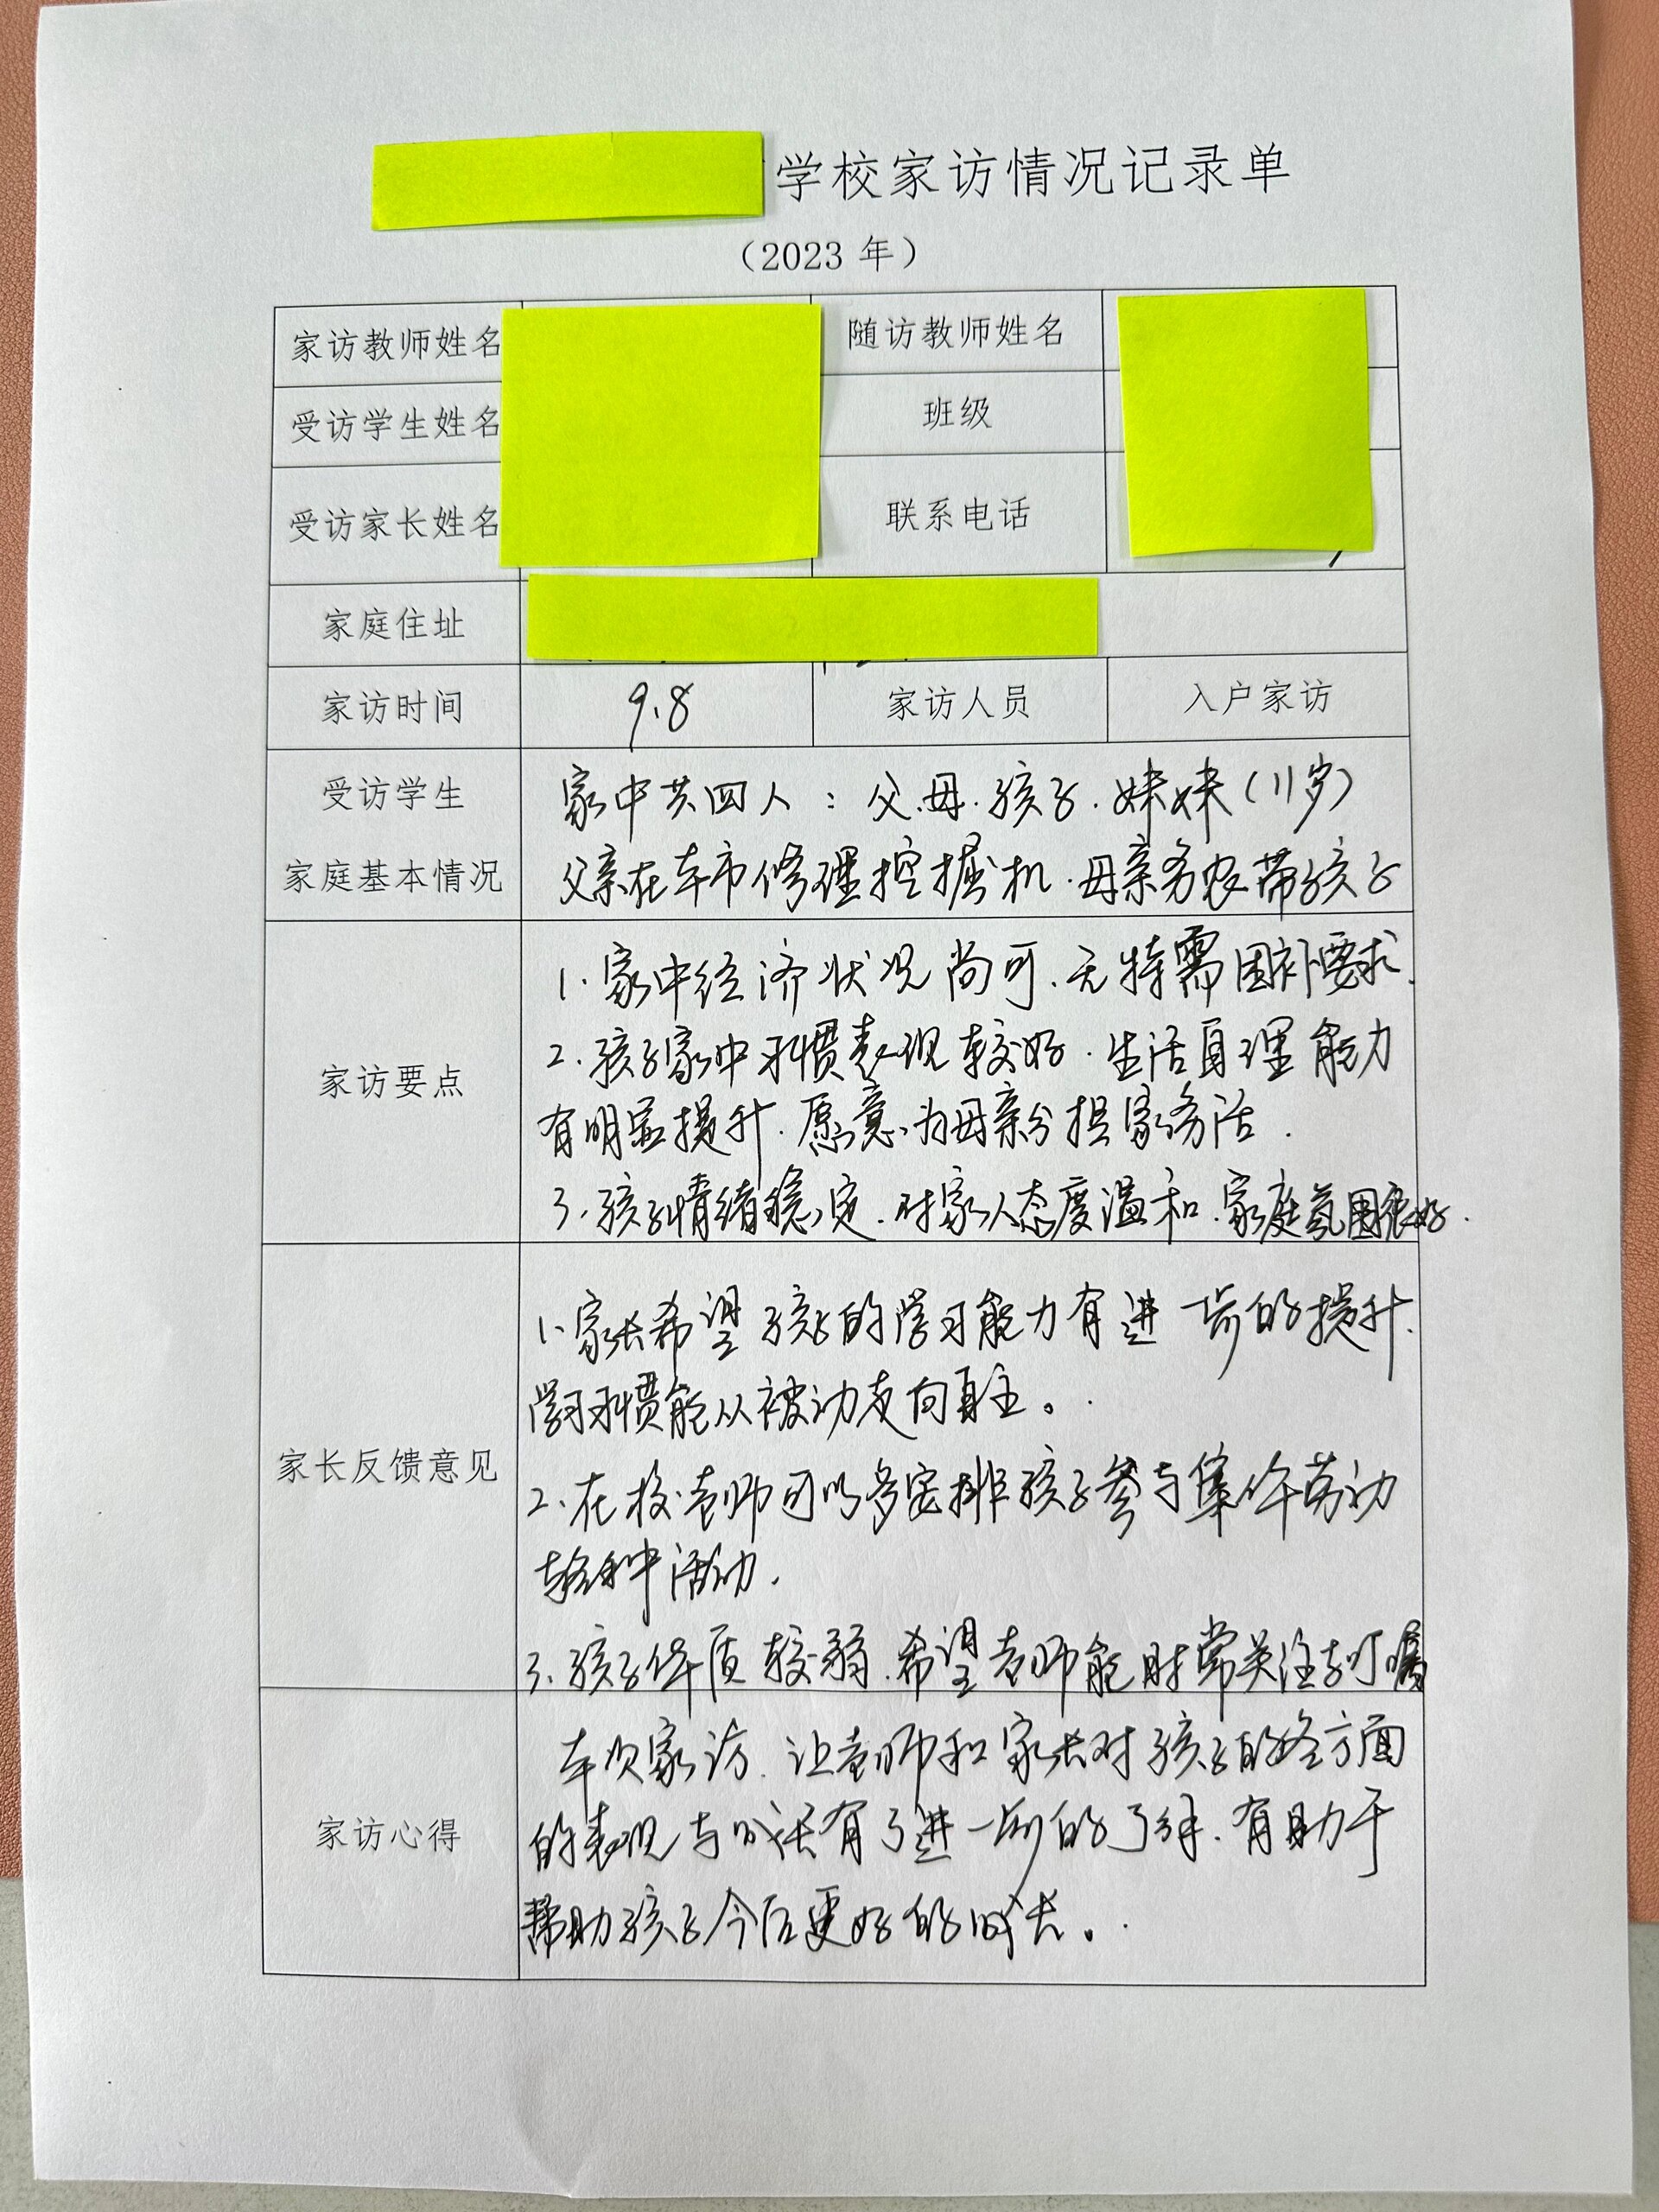 学校家访情况记录单
（2023 年）
家访教师姓名 随访教师姓名
受访学生姓名 班级
受访家长姓名 联系电话
家庭住址
家访时间 9.8 家访人员 入户家访
受访学生
家庭基本情况
家中共四人：父.母.孩子.妹妹（11岁）
父亲在本市修理挖掘机.母亲务农带孩子
家访要点
1.家中经济状况尚可.无特需困补要求.
2.孩子家中习惯表现较好.生活自理能力
有明显提升.愿意为母亲分担家务活.
3.孩子情绪稳定.对家人态度温和.家庭氛围很好.
家长反馈意见
1.家长希望孩子的学习能力有进一步的提升.
学习习惯能从被动走向自主。
2.在校.老师可以多安排孩子参与集体劳动
等各种活动.
3.孩子体质较弱.希望老师能时常关注与叮嘱
家访心得
本次家访.让老师和家长对孩子的各方面
的表现与成长有了进一步的了解.有助于
帮助孩子今后更好的成长。